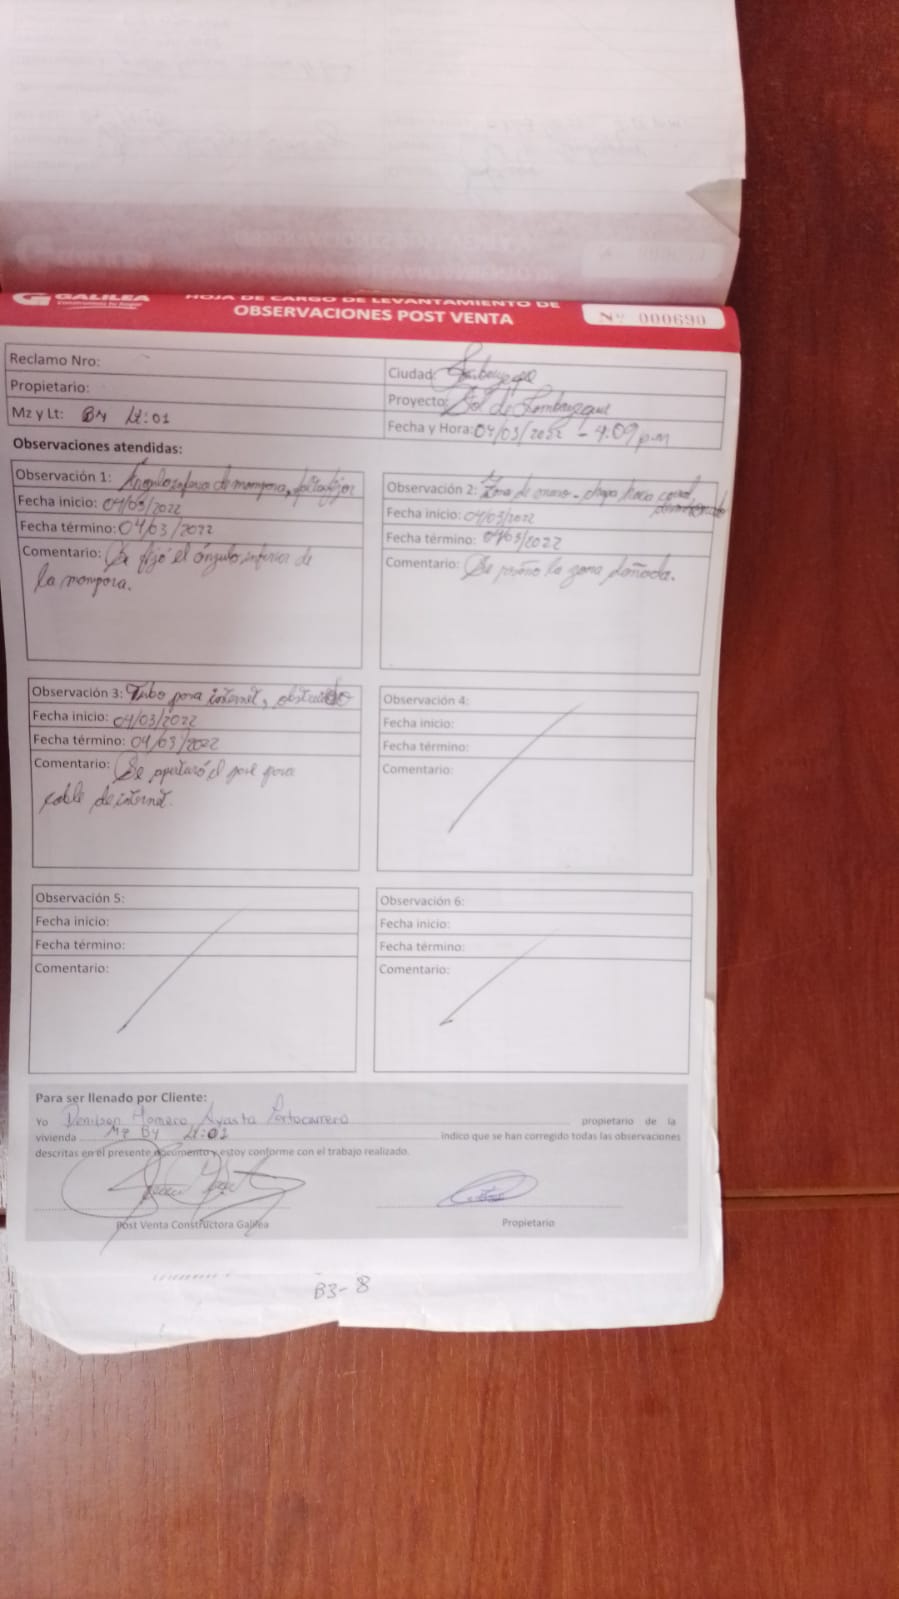 GALILEA
Construimos tu hogar
HOJA DE CARGO DE LEVANTAMIENTO DE
OBSERVACIONES POST VENTA
Nº 000690
Reclamo Nro:
Ciudad:
Propietario:
Proyecto: Sol de Lambayeque
Mz y Lt: B4 Lt:01
Fecha y Hora: 04/03/2022 - 4:09 p.m
Observaciones atendidas:
Observación 1: Angulo inferior de mampara, falta fijar
Fecha inicio: 04/03/2022
Fecha término: 04/03/2022
Comentario: Se fijó el ángulo inferior de
la mampara.
Observación 2: Zona de - chapa hacia corral
Fecha inicio: 04/03/2022
Fecha término: 04/03/2022
Comentario: Se la zona dañada.
Observación 3: Tubo para internet, obstruido
Fecha inicio: 04/03/2022
Fecha término: 04/03/2022
Comentario: Se el para
cable de internet.
Observación 4:
Fecha inicio:
Fecha término:
Comentario:
Observación 5:
Fecha inicio:
Fecha término:
Comentario:
Observación 6:
Fecha inicio:
Fecha término:
Comentario:
Para ser llenado por Cliente:
Yo Denilson Homero Ayasta Portocarrero propietario de la
vivienda Mz B4 Lt:01 indico que se han corregido todas las observaciones
descritas en el presente documento y estoy conforme con el trabajo realizado.
Post Venta Constructora Galilea
Propietario
B3-8